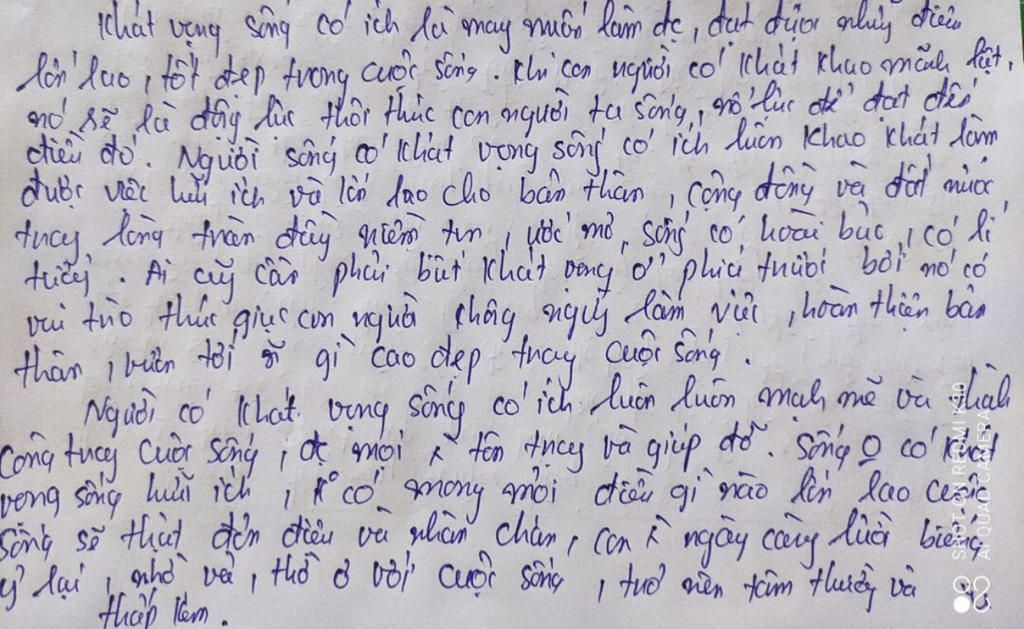 Khát vọng sống có ích là may muốn làm đc, đạt được những điều
lớn lao, tốt đẹp trong cuộc sống. Khi con người có khát khao mãnh liệt,
nó sẽ là động lực thôi thúc con người ta sống, nỗ lực để đạt đến
điều đó. Người sống có khát vọng sống có ích luôn khao khát làm
được việc hữu ích và lớn lao cho bản thân, cộng đồng và đất nước
trong lòng tràn đầy niềm tin, ước mơ, sống có hoài bão, có lí
tưởng. Ai cũng cần phải khát vọng ở phía trước bởi nó có
vai trò thúc giục con người không ngừng làm việc, hoàn thiện bản
thân, vươn tới gì cao đẹp trong cuộc sống.
Người có khát vọng sống có ích luôn luôn mạnh mẽ và thành
công trong cuộc sống, đc mọi tôn trọng và giúp đỡ. Sống có khát
vọng sống hữu ích, có mong mỏi điều gì nào lớn lao cuộc
sống sẽ thật đơn điệu và nhàm chán, con ngày càng lười biếng
ỷ lại, thờ ơ với cuộc sống, trở nên tầm thường và
thấp kém.
SHOT ON REDMI K30
AI QUAD CAMERA